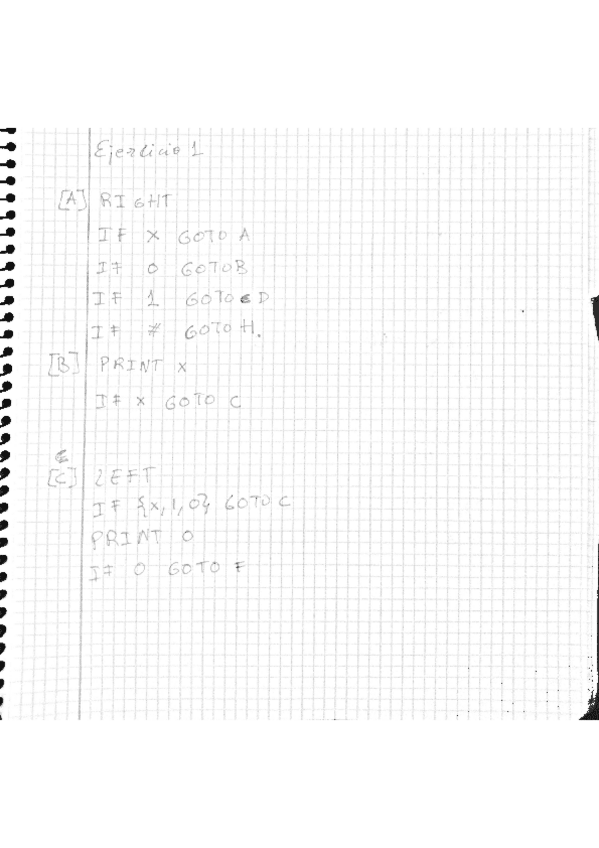 Ejercicio 1
[A] RIGHT
IF x GOTO A
IF 0 GOTO B
IF 1 GOTO D
IF # GOTO H.
[B] PRINT x
IF x GOTO C
[C] LEFT
IF {x,1,0} GOTO C
PRINT 0
IF 0 GOTO F